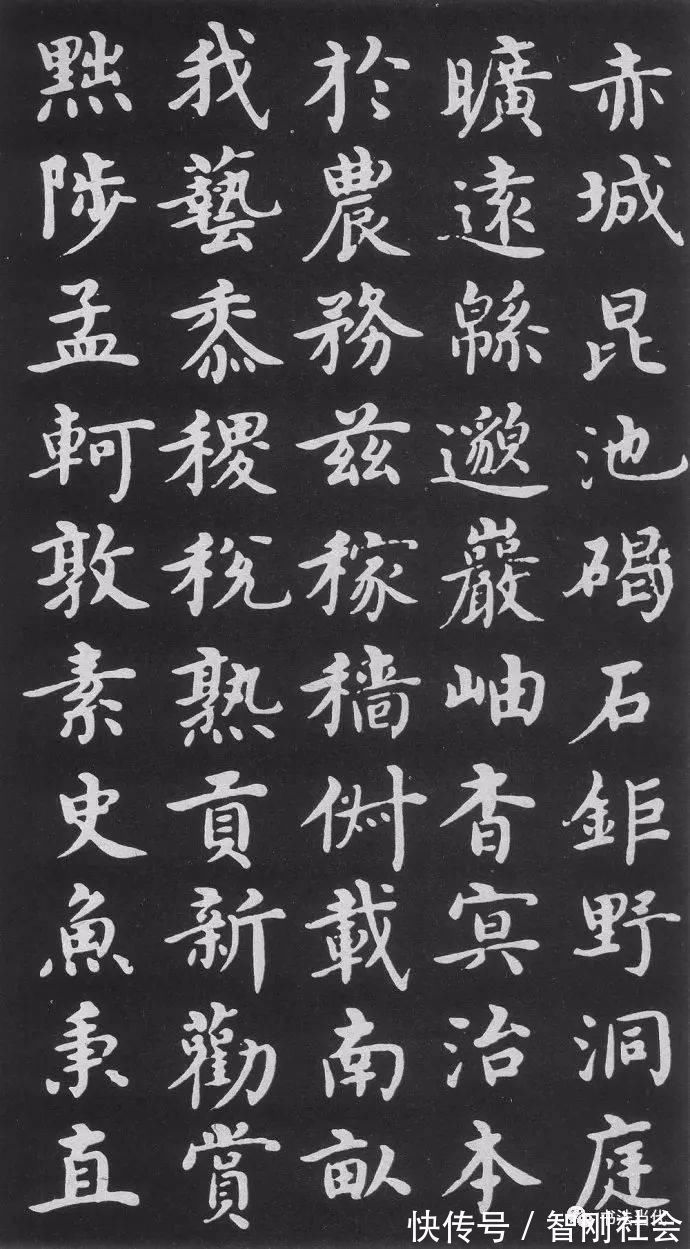 赤城昆池碣石鉅野洞庭
曠遠緜邈巖岫杳冥治本
於農務兹稼穡俶載南畝
我藝黍稷稅熟貢新勸賞
黜陟孟軻敦素史魚秉直
书法当代
快传号／智刚社会